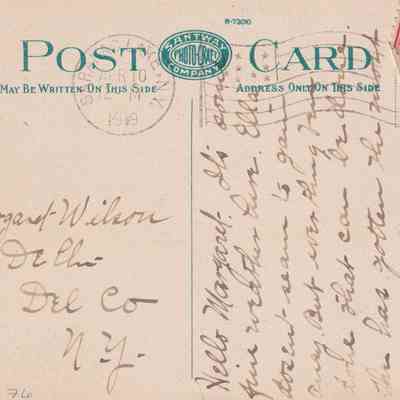 B-7300
POST CARD
SANTWAY
PHOTO-CRAFT
COMPANY
MAY BE WRITTEN ON THIS SIDE
ADDRESS ONLY ON THIS SIDE
APR 10
1919
N.Y.
garet Wilson
Delhi
Del Co
N.Y.
Hello Margaret. It's
fine weather here. Ella
doesn't seem to gain
any. But everything
done that can be done.
She has gotten the